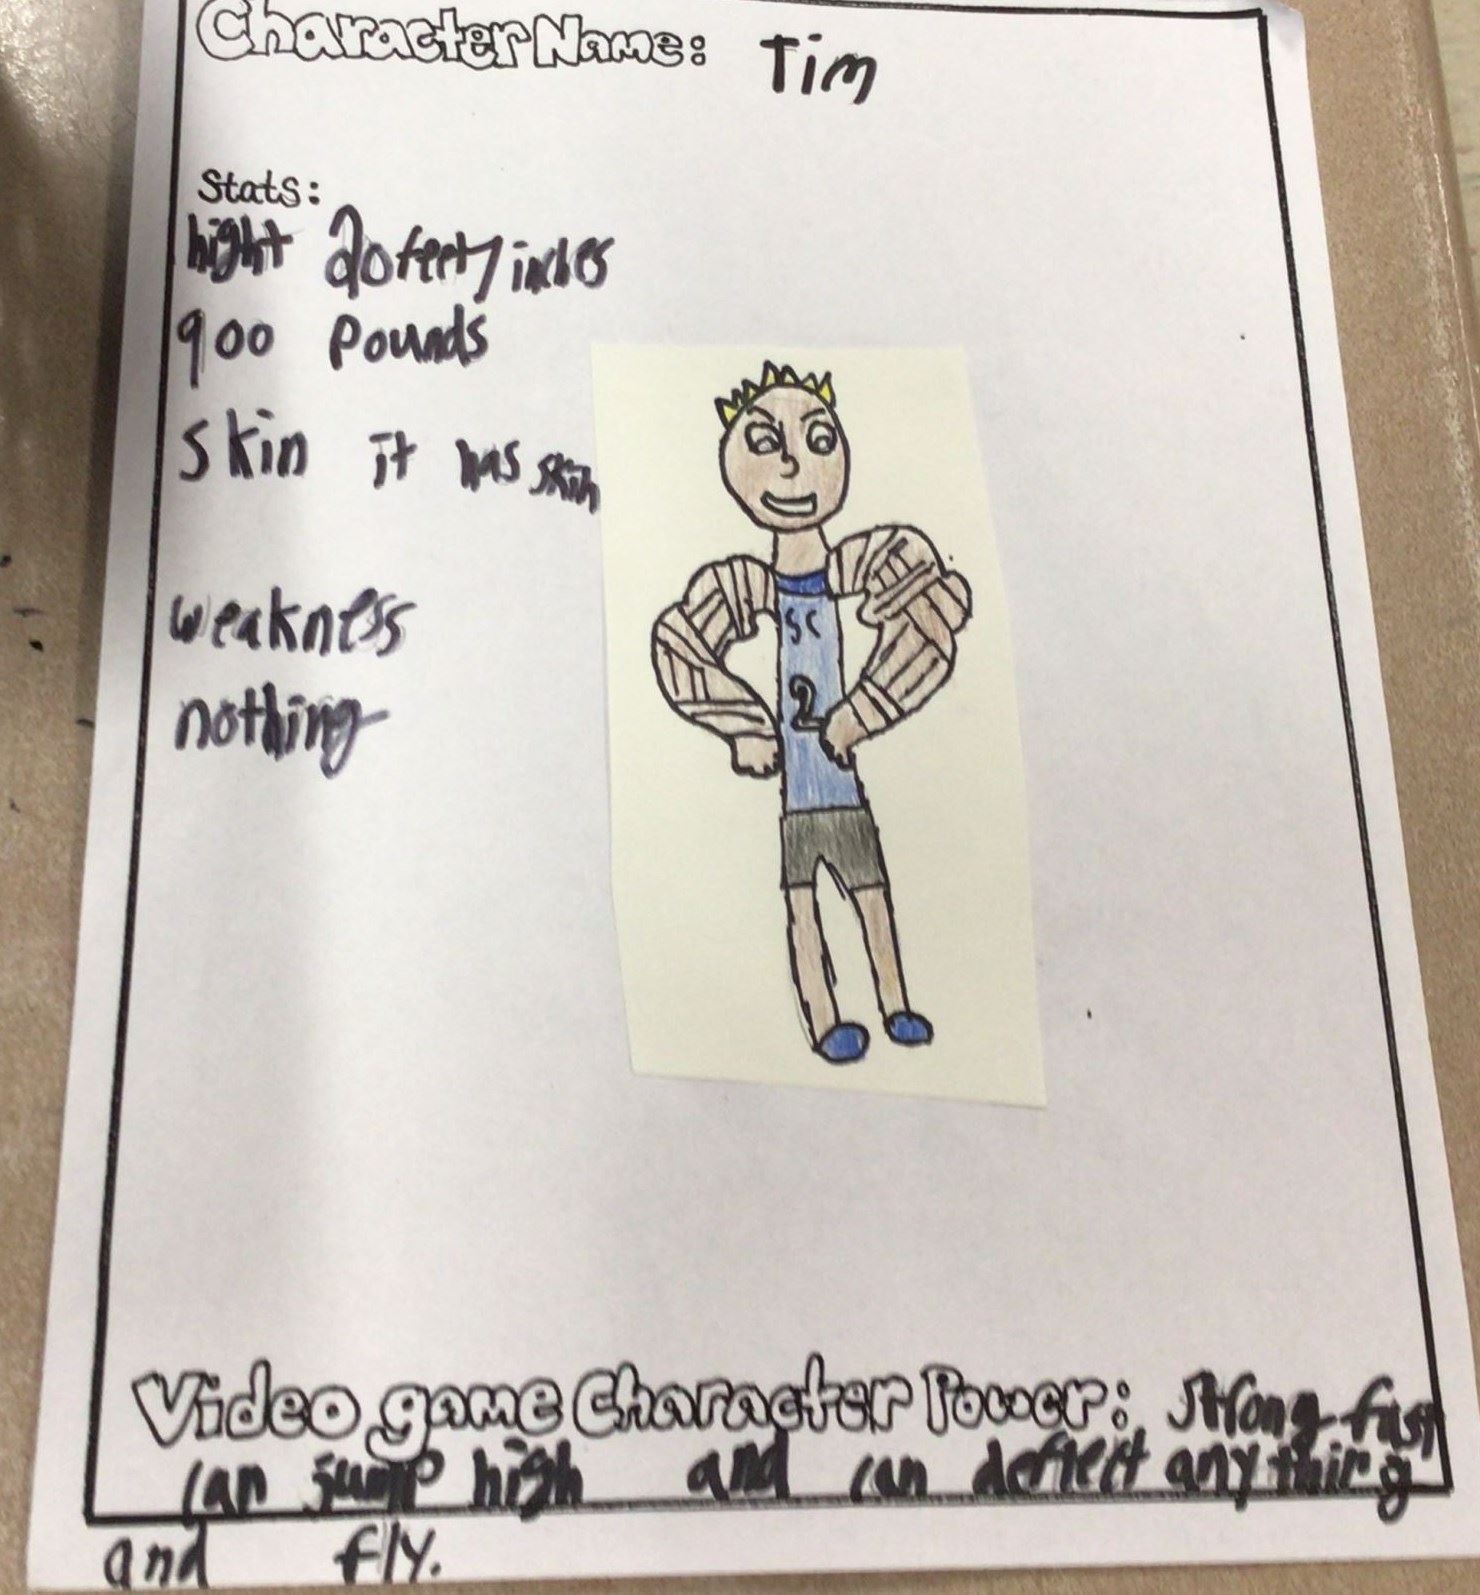 Character Name: Tim
Stats:
hight 20 feet 7 inches
900 Pounds
skin it has skin
weakness
nothing
SC
2
Video game Character Power: Strong fast
can jump high and can deflect any thing
and fly.